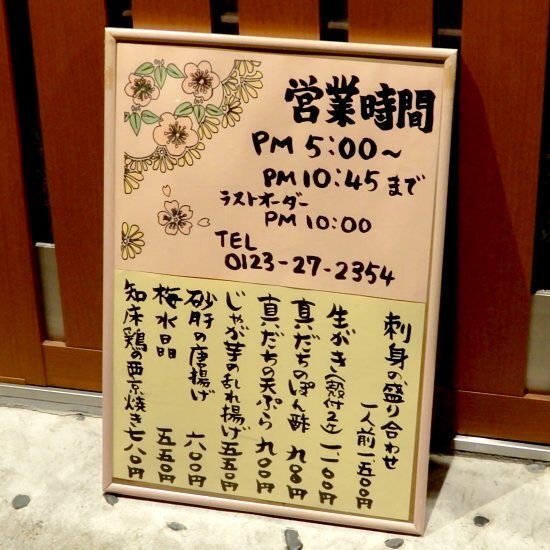 営業時間
PM 5:00〜
PM 10:45まで
ラストオーダー
PM 10:00
TEL
0123-27-2354
刺身の盛り合わせ
一人前一五〇〇円
生がき(殻付2ケ)一、一〇〇円
真だちのぽん酢 九〇〇円
真だちの天ぷら 九〇〇円
じゃが芋の乱れ揚げ 五五〇円
砂肝の唐揚げ 六〇〇円
梅水晶 五五〇円
知床鶏の西京焼き 七八〇円